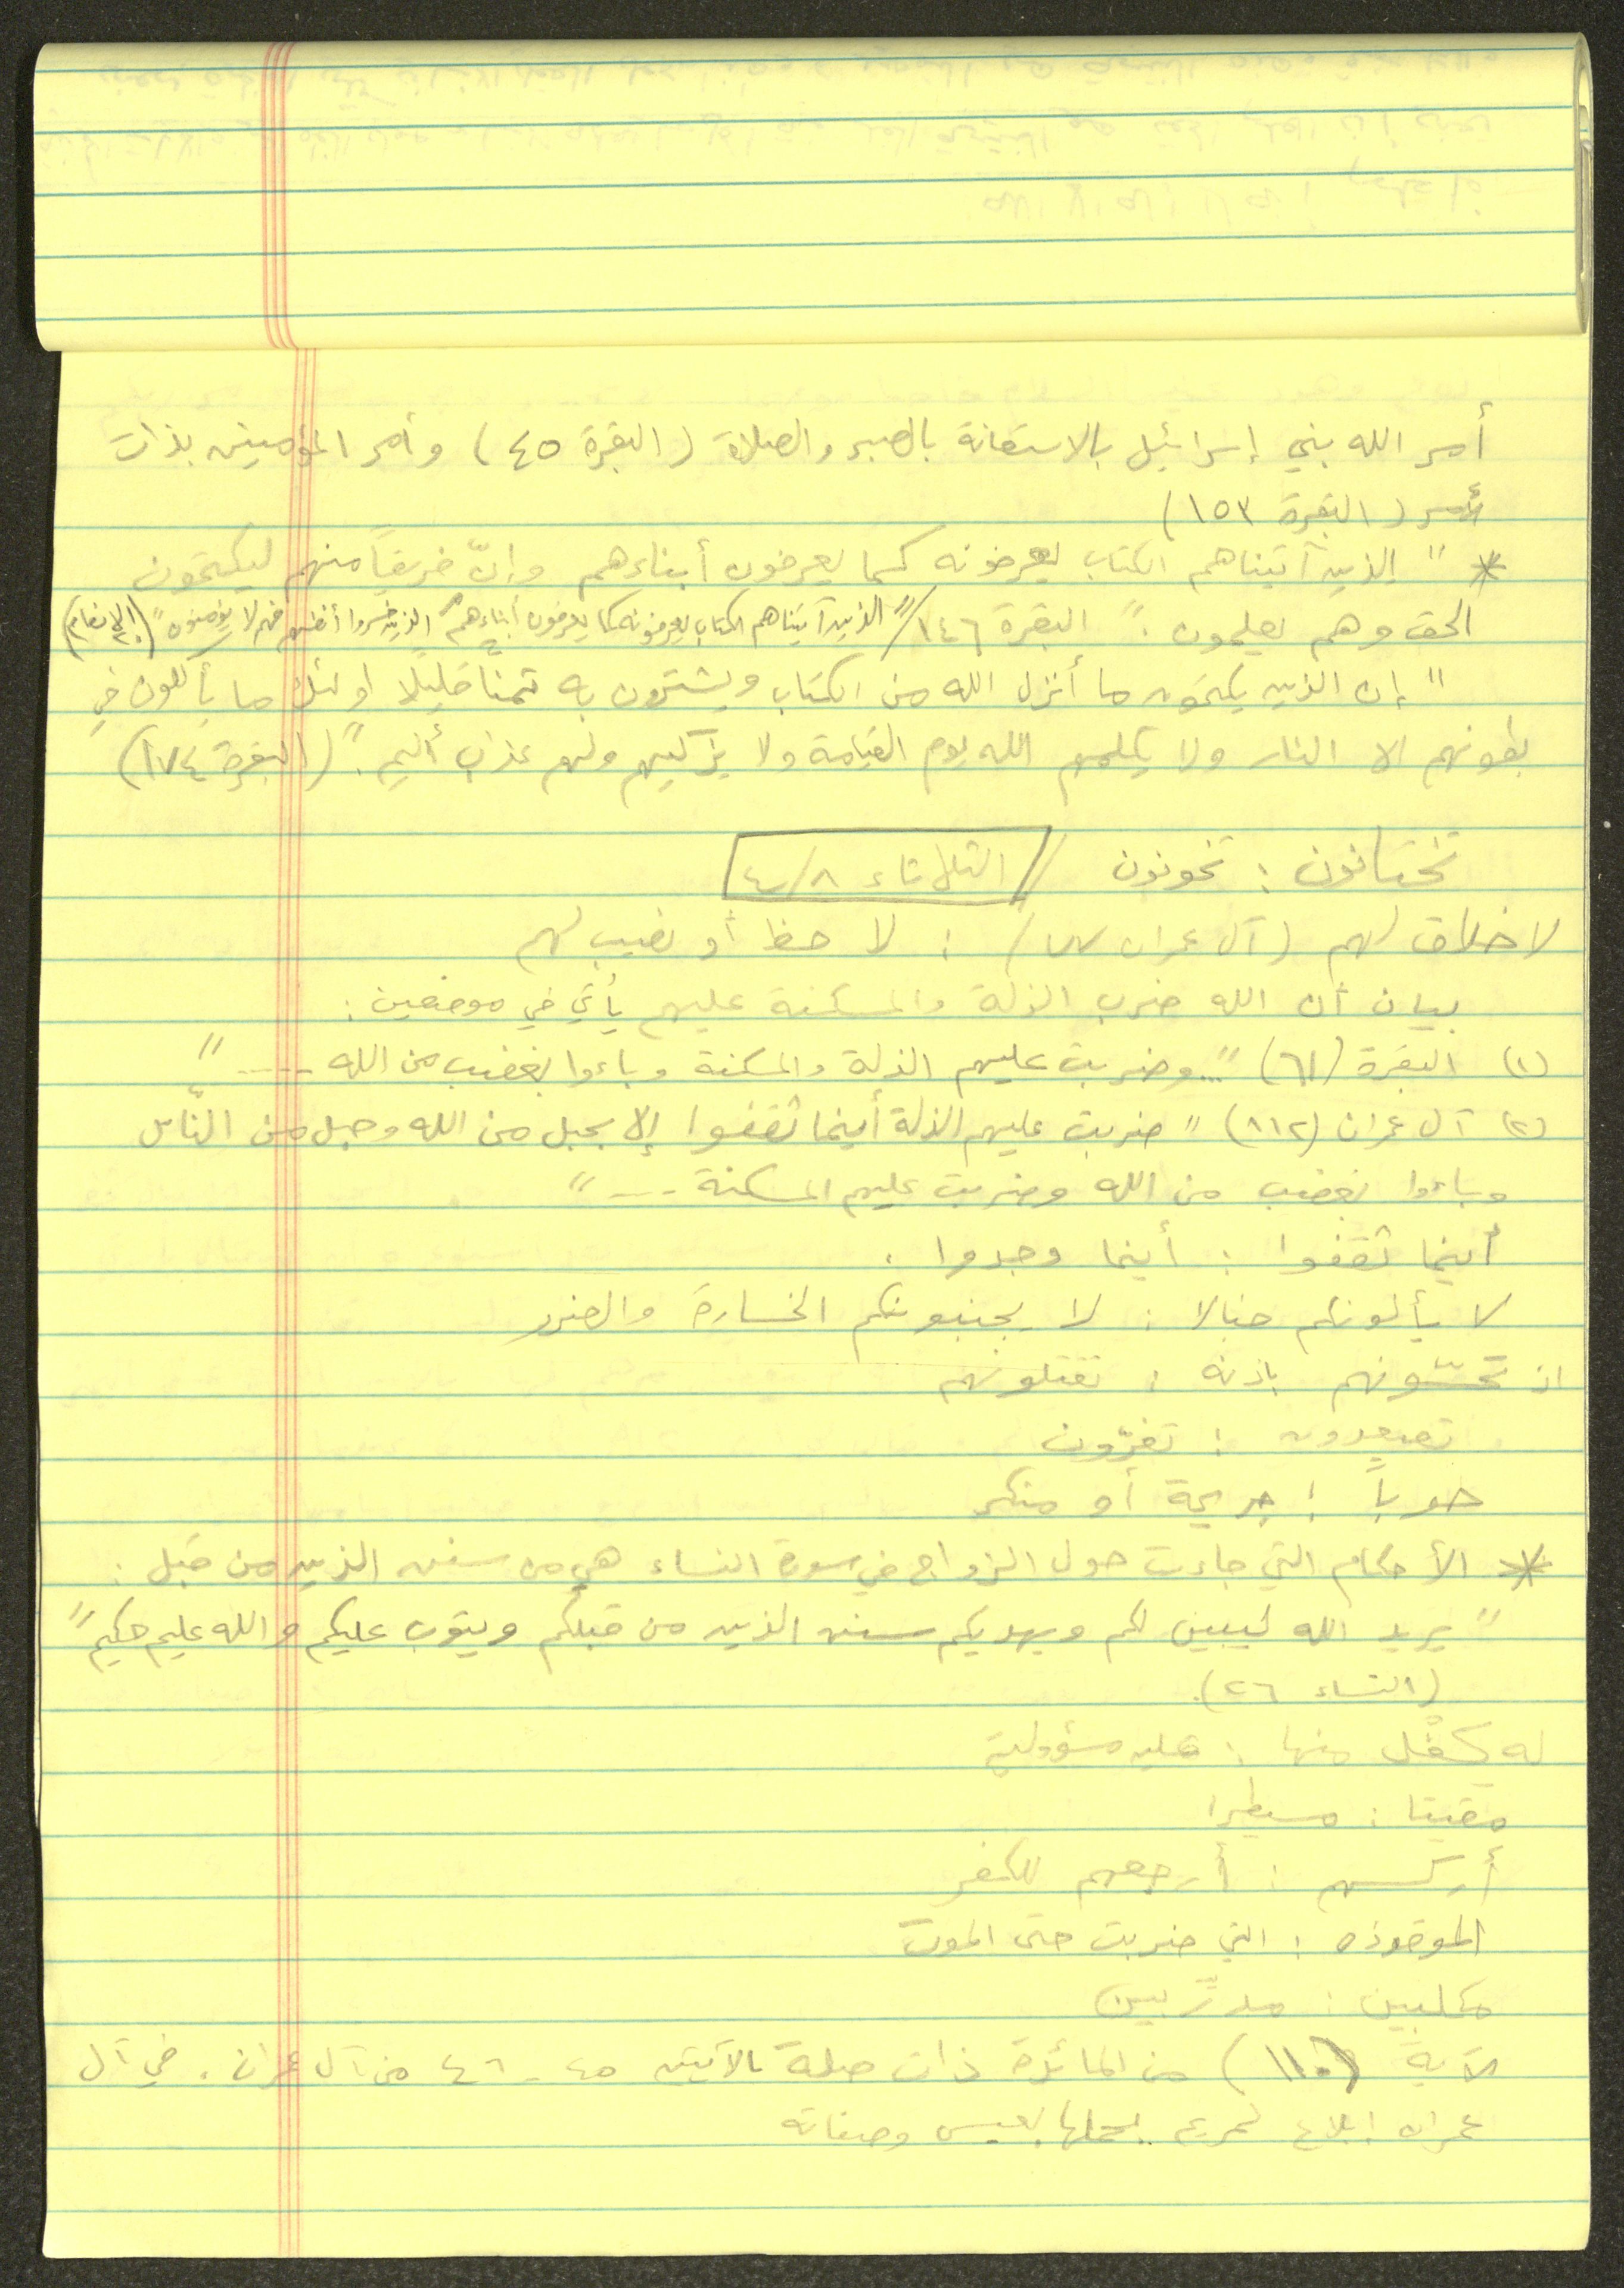 أمر الله بني إسرائيل بالاستعانة بالصبر والصلاة (البقرة ٤٥) وأمر المؤمنين بذات
الأمر (البقرة ١٥٣)
* "الذين آتيناهم الكتاب يعرفونه كما يعرفون أبناءهم وإنّ فريقاً منهم ليكتمون
الحق وهم يعلمون." البقرة ١٤٦ // "الذين آتيناهم الكتاب يعرفونه كما يعرفون أبناءهم الذين خسروا أنفسهم فهم لا يؤمنون" (الانعام)
"إن الذين يكتمون ما أنزل الله من الكتاب ويشترون به ثمنا قليلًا اولئك ما يأكلون في
بطونهم الا النار ولا يكلمهم الله يوم القيامة ولا يزكيهم ولهم عذاب أليم." (البقرة ١٧٤)
تختانون : تخونون // الثلاثاء ٤/٨
لا خلاق لهم (آل عمران ٧٧) : لا حظ أو نصيب لهم
بيان أن الله ضرب الذلة والمسكنة عليهم يأتي في موضعين :
(١) البقرة (٦١) "...وضربت عليهم الذلة والمسكنة وباءوا بغضب من الله ....."
(٢) آل عمران (١١٢) "ضربت عليهم الذلة أينما ثقفوا إلا بحبل من الله وحبل من النّاس
وباءوا بغضب من الله وضربت عليهم المسكنة ...."
أينما ثقفوا : أينما وجدوا .
لا يألونكم خبالا : لا يجنبونكم الخسارة والضرر
اذ تحسّونهم باذنه : تقتلونهم
تصعدون : تفرّون
حوباً : جريمة أو منكر
* الأحكام التي جاءت حول الزواج في سورة النساء هي من سنن الذين من قبل :
"يريد الله ليبين لكم ويهديكم سنن الذين من قبلكم ويتوب عليكم والله عليم حكيم"
(النساء ٢٦).
له كفْل منها : عليه مسؤولية
مقيتا : مسيطرا
أركسهم : أرجعهم للكفر
الموقوذه : التي ضربت حتى الموت
مكلبين : مدرّبين
الآية (١١٠) من المائدة ذات صلة بالآيتين ٤٥ - ٤٦ من آل عمران . في آل
عمران ابلاغ لمريم بحملها بعيسى وصفاته